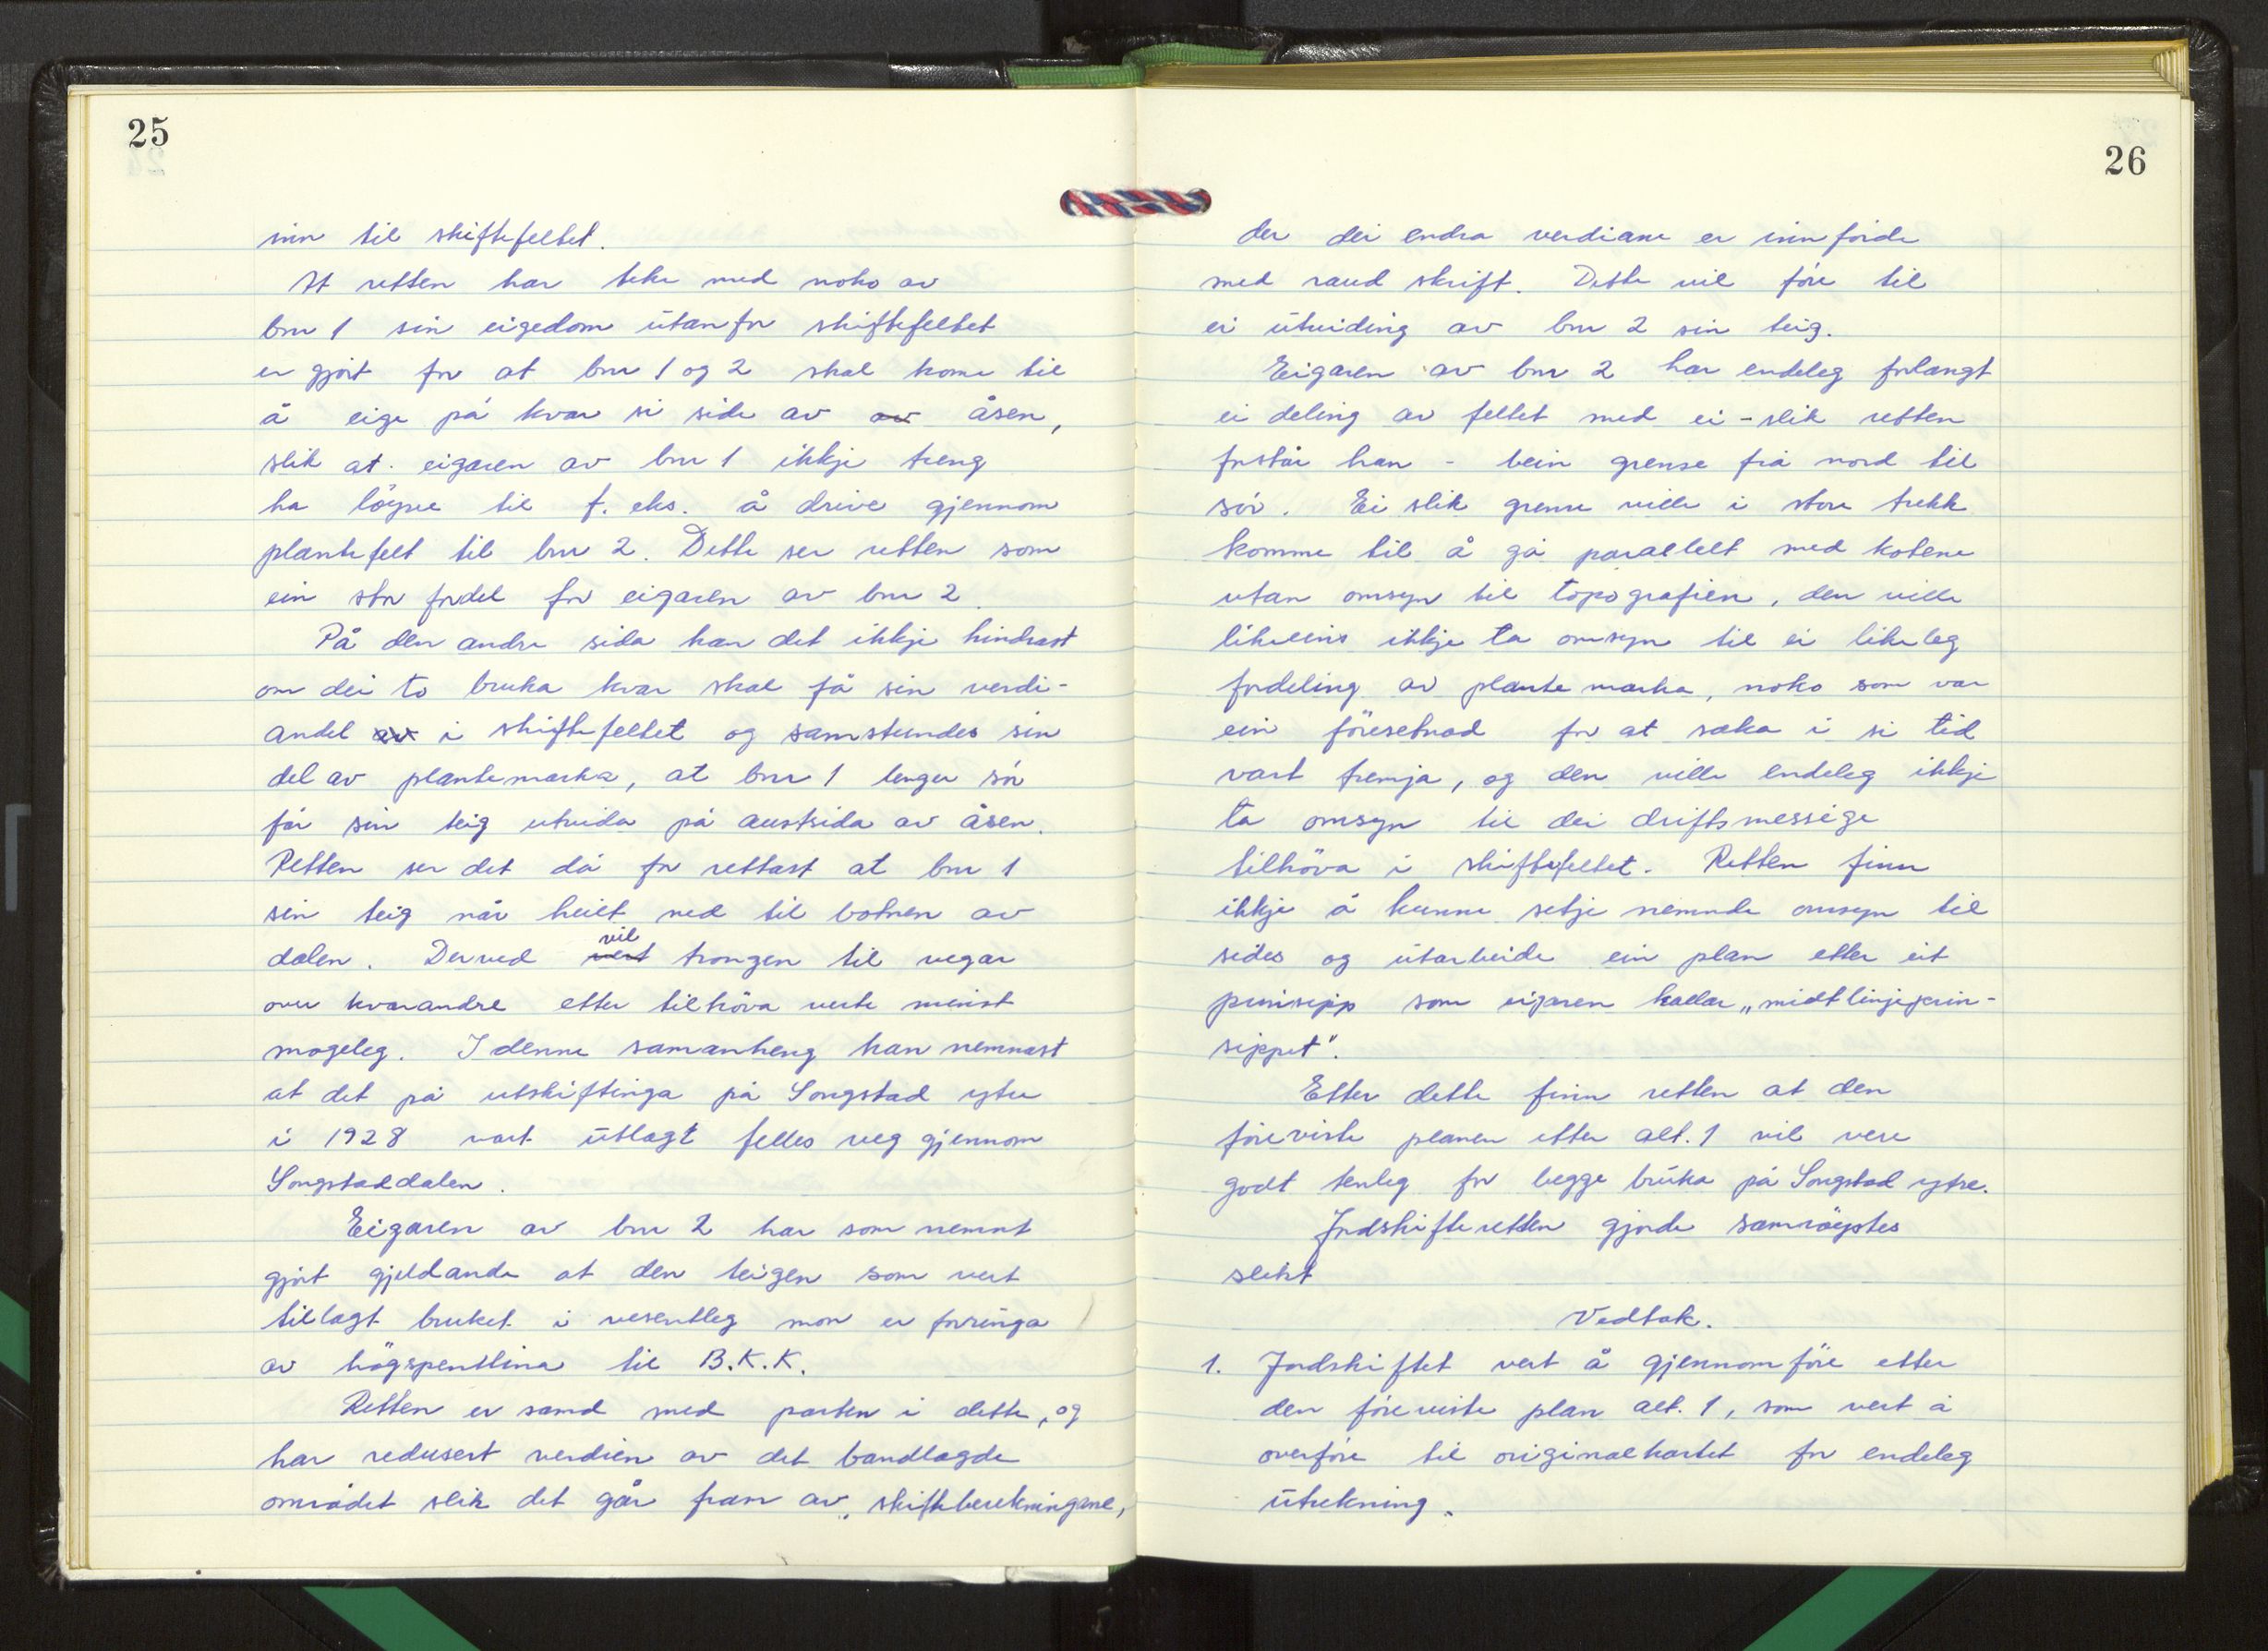 25
inn til skiftefeltet.
At retten har teke med noko av
bnr 1 sin eigedom utanfor skiftefeltet
er gjort for at bnr 1 og 2 skal kome til
å eige på kvar si side av av åsen,
slik at eigaren av bnr 1 ikkje treng
ha löyve til f. eks. å drive gjennom
plantefelt til bnr 2. Dette ser retten som
ein stor fordel for eigaren av bnr 2.
På den andre sida kan det ikkje hindrast
om dei to bruka kvar skal få sin verdi-
andel av i skiftefeltet og samstundes sin
del av plantemarka, at bnr 1 lenger sör
får sin teig utvida på austsida av åsen.
Retten ser det då for rettast at bnr 1
sin teig når heilt ned til botnen av
dalen. Derved vert vil trongen til vegar
over kvarandre etter tilhöva verte minst
mogeleg. I denne samanheng kan nemnast
at det på utskiftinga på Songstad ytre
i 1928 vart utlagt felles veg gjennom
Songstaddalen.
Eigaren av bnr 2 har som nemnt
gjort gjeldande at den teigen som vert
tillagt bruket i vesentleg mon er forringa
av högspentlina til B.K.K.
Retten er samd med parten i dette, og
har redusert verdien av det bandlagde
området slik det går fram av skifteberekningane,
26
der dei endra verdiane er innförde
med raud skrift. Dette vil före til
ei utviding av bnr 2 sin teig.
Eigaren av bnr 2 har endeleg forlangt
ei deling av feltet med ei - slik retten
forstår han - bein grense frå nord til
sör. Ei slik grense ville i store trekk
komme til å gå parallelt med kotene
utan omsyn til topografien, den ville
likeeins ikkje ta omsyn til ei likeleg
fordeling av plantemarka, noko som var
ein föresetnad for at saka i si tid
vart fremja, og den ville endeleg ikkje
ta omsyn til dei driftsmessige
tilhöva i skiftefeltet. Retten finn
ikkje å kunne setje nemnde omsyn til
sides og utarbeide ein plan etter eit
prinsipp som eigaren kallar „midtlinjeprin-
sippet".
Etter dette finn retten at den
föreviste planen etter alt. 1 vil vere
godt tenleg for begge bruka på Songstad ytre.
Jordskifteretten gjorde samröystes
slikt
Vedtak.
1. Jordskiftet vert å gjennomföre etter
den föreviste plan alt. 1, som vert å
overföre til originalkartet for endeleg
utrekning.